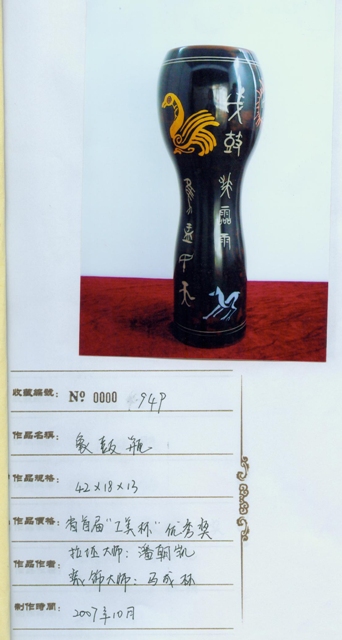 鼓
收藏編號: № 0000 949
作品名稱: 象鼓瓶
作品規格: 42×18×13
作品價格: 省首届"工美杯"优秀奖
拉坯大师: 潘朝凯
作品作者:
装饰大师: 马成林
制作時間: 2007年10月